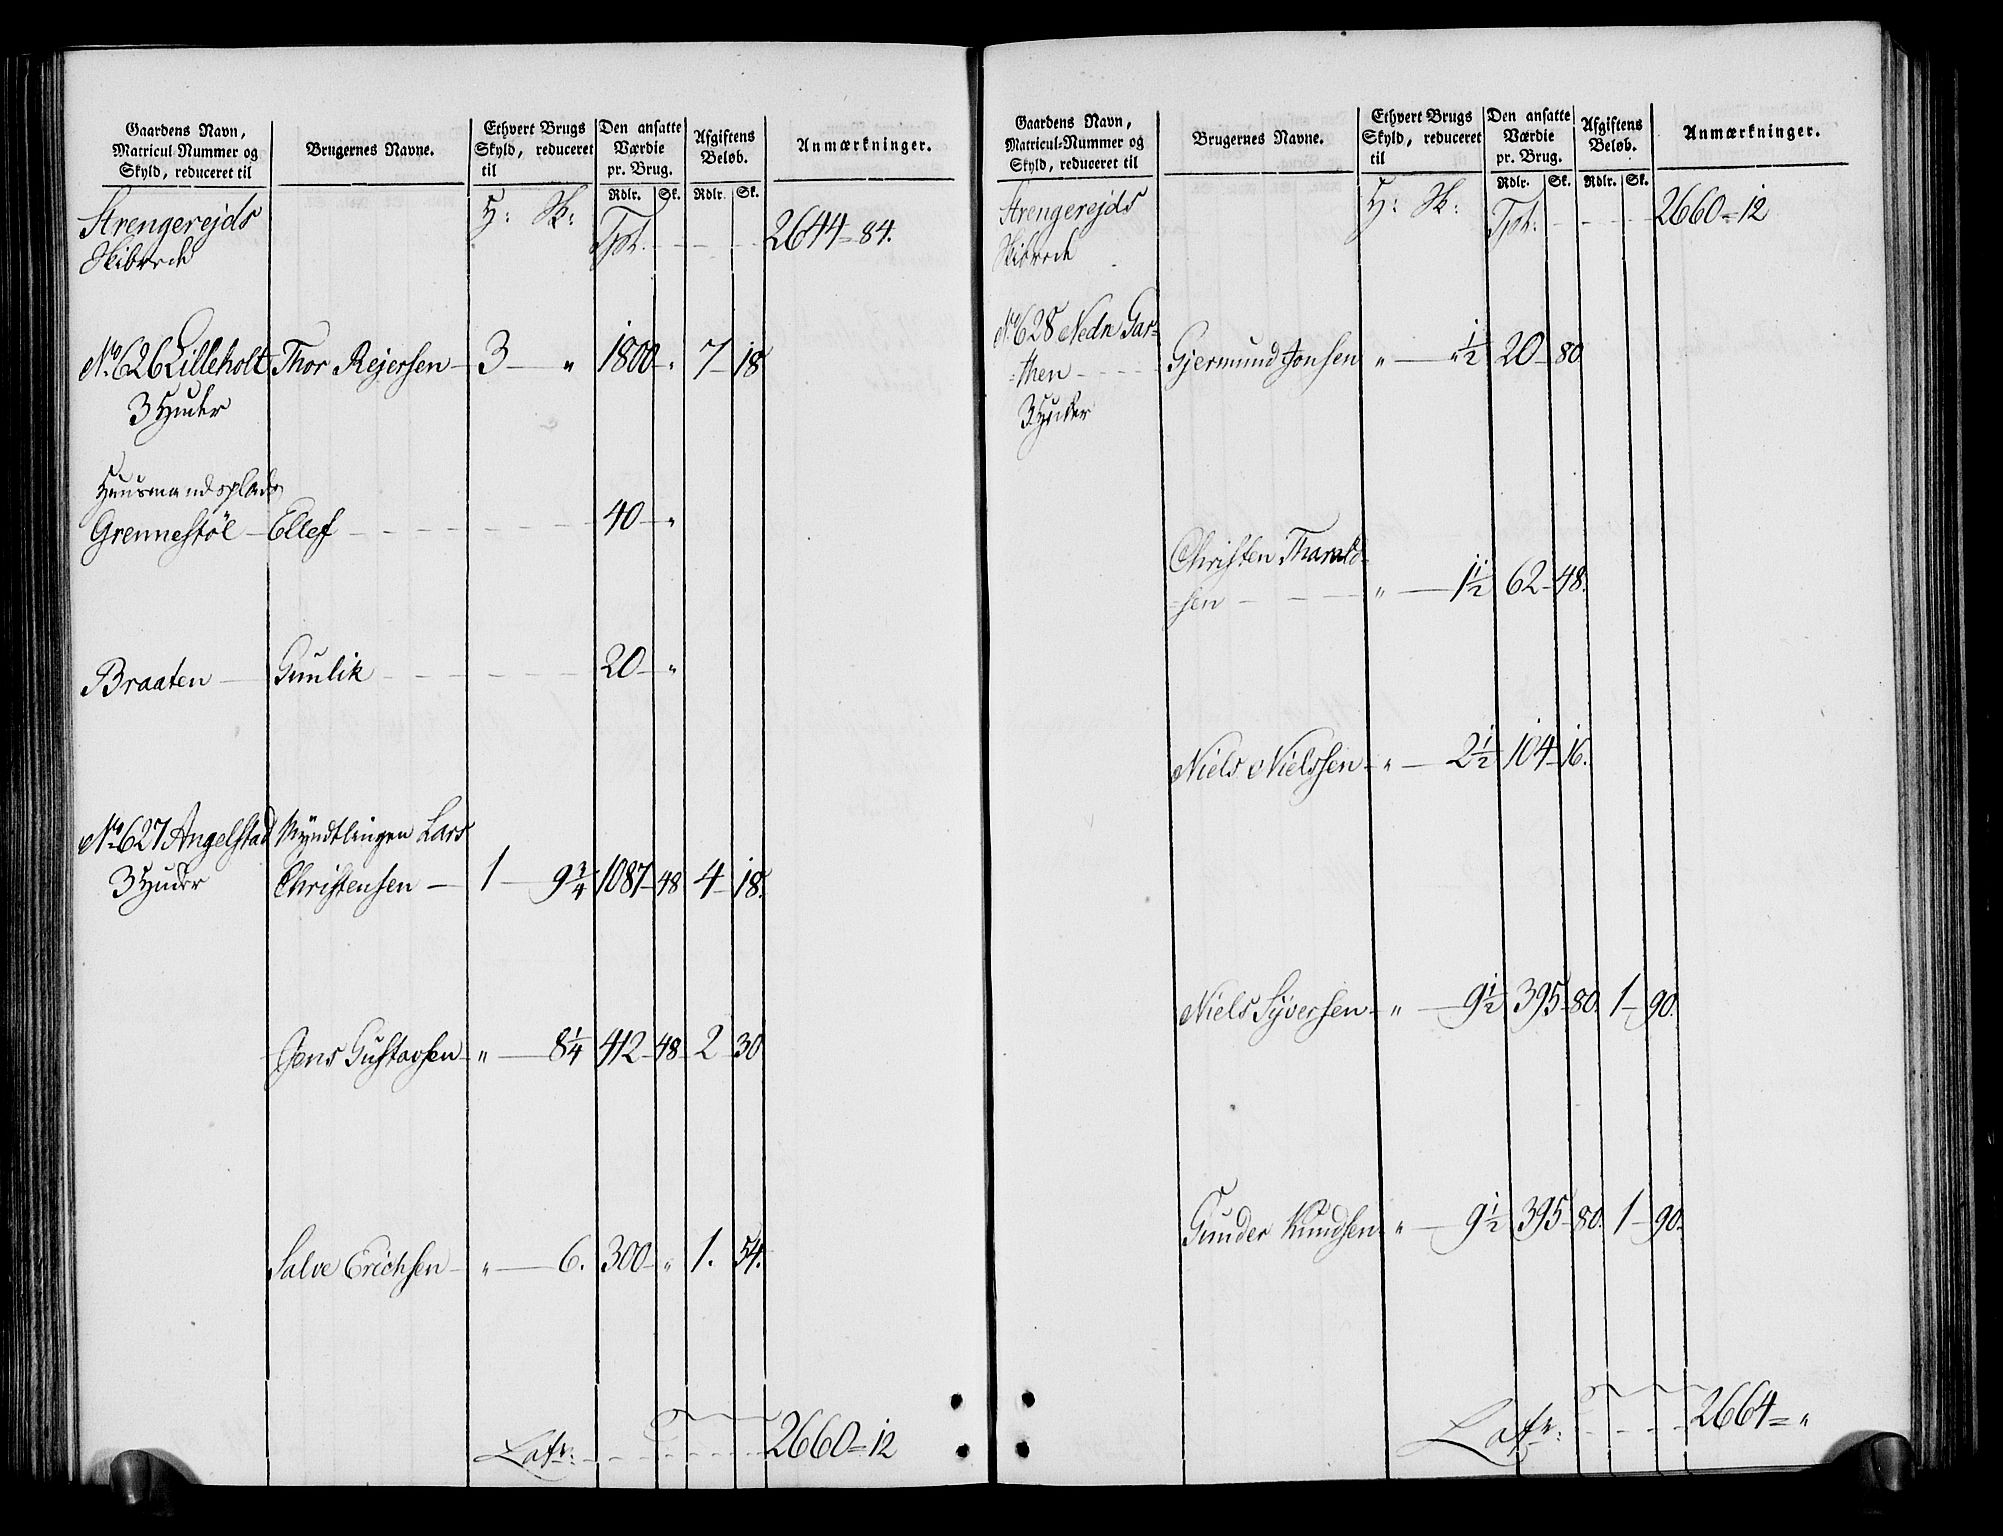 Gaardens Navn, Matricul-Nummer og Skyld, reduceret til | Brugernes Navne. | Ethvert Brugs Skyld, reduceret til | Den ansatte Værdie pr. Brug. Rdlr. Sk. | Afgiftens Beløb. Rdlr. Sk. | Anmærkninger.
Strengerejds H: Sk: Tpt. 2644 = 84.
Skibrede
No 626 Lilleholt Thor Rejersen 3 " 1800 " 7 18
3 Huder
Huusmandsplads
Grennestøl Ellef 40 "
Braaten Gunlik 20 "
No 627 Angelstad Myndtlingen Lars
3 Huder Christensen 1 9 3/4 1087 48 4 18.
Jens Gustavsen " 8 1/4 412 48 2 30
Salve Erichsen " 6. 300 " 1. 54.
Latr: 2660 = 12
Gaardens Navn, Matricul-Nummer og Skyld, reduceret til | Brugernes Navne. | Ethvert Brugs Skyld, reduceret til | Den ansatte Værdie pr. Brug. Rdlr. Sk. | Afgiftens Beløb. Rdlr. Sk. | Anmærkninger.
Strengerejds H: Sk: Tpt. 2660 = 12
Skibrede
No 628 Nedr Gar=
=then Gjermund Jonsen " " 1/2 20 80
3 Huder
Christen Tharald=
=sen " 1 1/2 62 48.
Niels Nielssen " 2 1/2 104 16.
Niels Syversen " 9 1/2 395 80. 1 90.
Gunder Knudsen " 9 1/2 395 80. 1 90.
Latr: 2664 = "